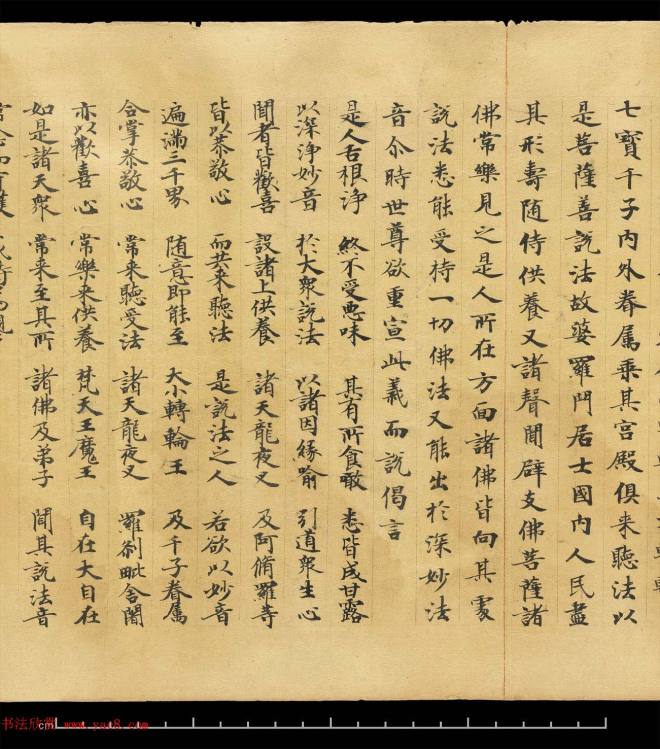 七寶千子內外眷属乗其宮殿俱来聽法以
是菩薩善說法故婆羅門居士國內人民盡
其形壽随侍供養又諸聲聞辟支佛菩薩諸
佛常樂見之是人所在方面諸佛皆向其處
說法悉能受持一切佛法又能出於深妙法
音尒時世尊欲重宣此義而說偈言
是人舌根淨 終不受惡味 其有所食噉 悉皆成甘露
以深淨妙音 於大衆說法 以諸因緣喻 引道衆生心
聞者皆歡喜 設諸上供養 諸天龍夜叉 及阿脩羅等
皆以恭敬心 而共来聽法 是說法之人 若欲以妙音
遍滿三千界 随意即能至 大小轉輪王 及千子眷属
合掌恭敬心 常来聽受法 諸天龍夜叉 羅剎毗舍闍
亦以歡喜心 常樂来供養 梵天王魔王 自在大自在
如是諸天衆 常来至其所 諸佛及弟子 聞其說法音
书法欣赏 www.yac8.com
cm